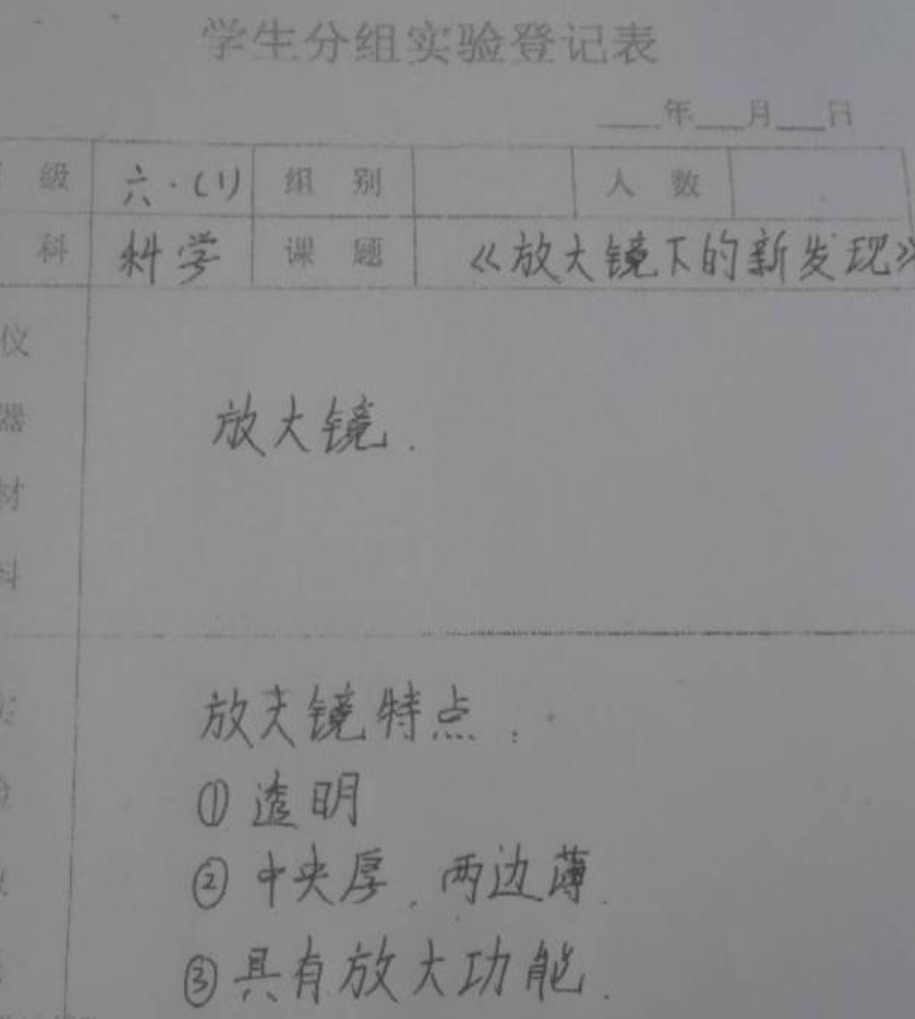 学生分组实验登记表
___年___月___日
级 六·(1) 组别 人数
科 科学 课题 《放大镜下的新发现》
仪
器
材
料
放大镜.
放大镜特点:
①透明
②中央厚,两边薄.
③具有放大功能.